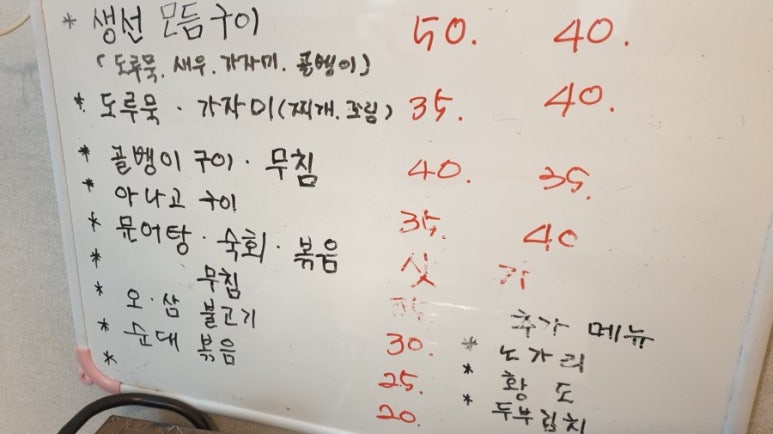 * 생선 모듬구이 50. 40.
(도루묵. 새우. 가자미. 골뱅이)
* 도루묵 · 가자미(찌개. 조림) 35. 40.
* 골뱅이 구이 · 무침 40. 35.
* 아나고 구이 35.
* 문어탕 · 숙회 · 볶음 40
* 무침 싯 가
* 오 · 삼 불고기
* 순대 볶음 30.
*
25.
20.
추가 메뉴
* 노가리
* 황 도
* 두부김치